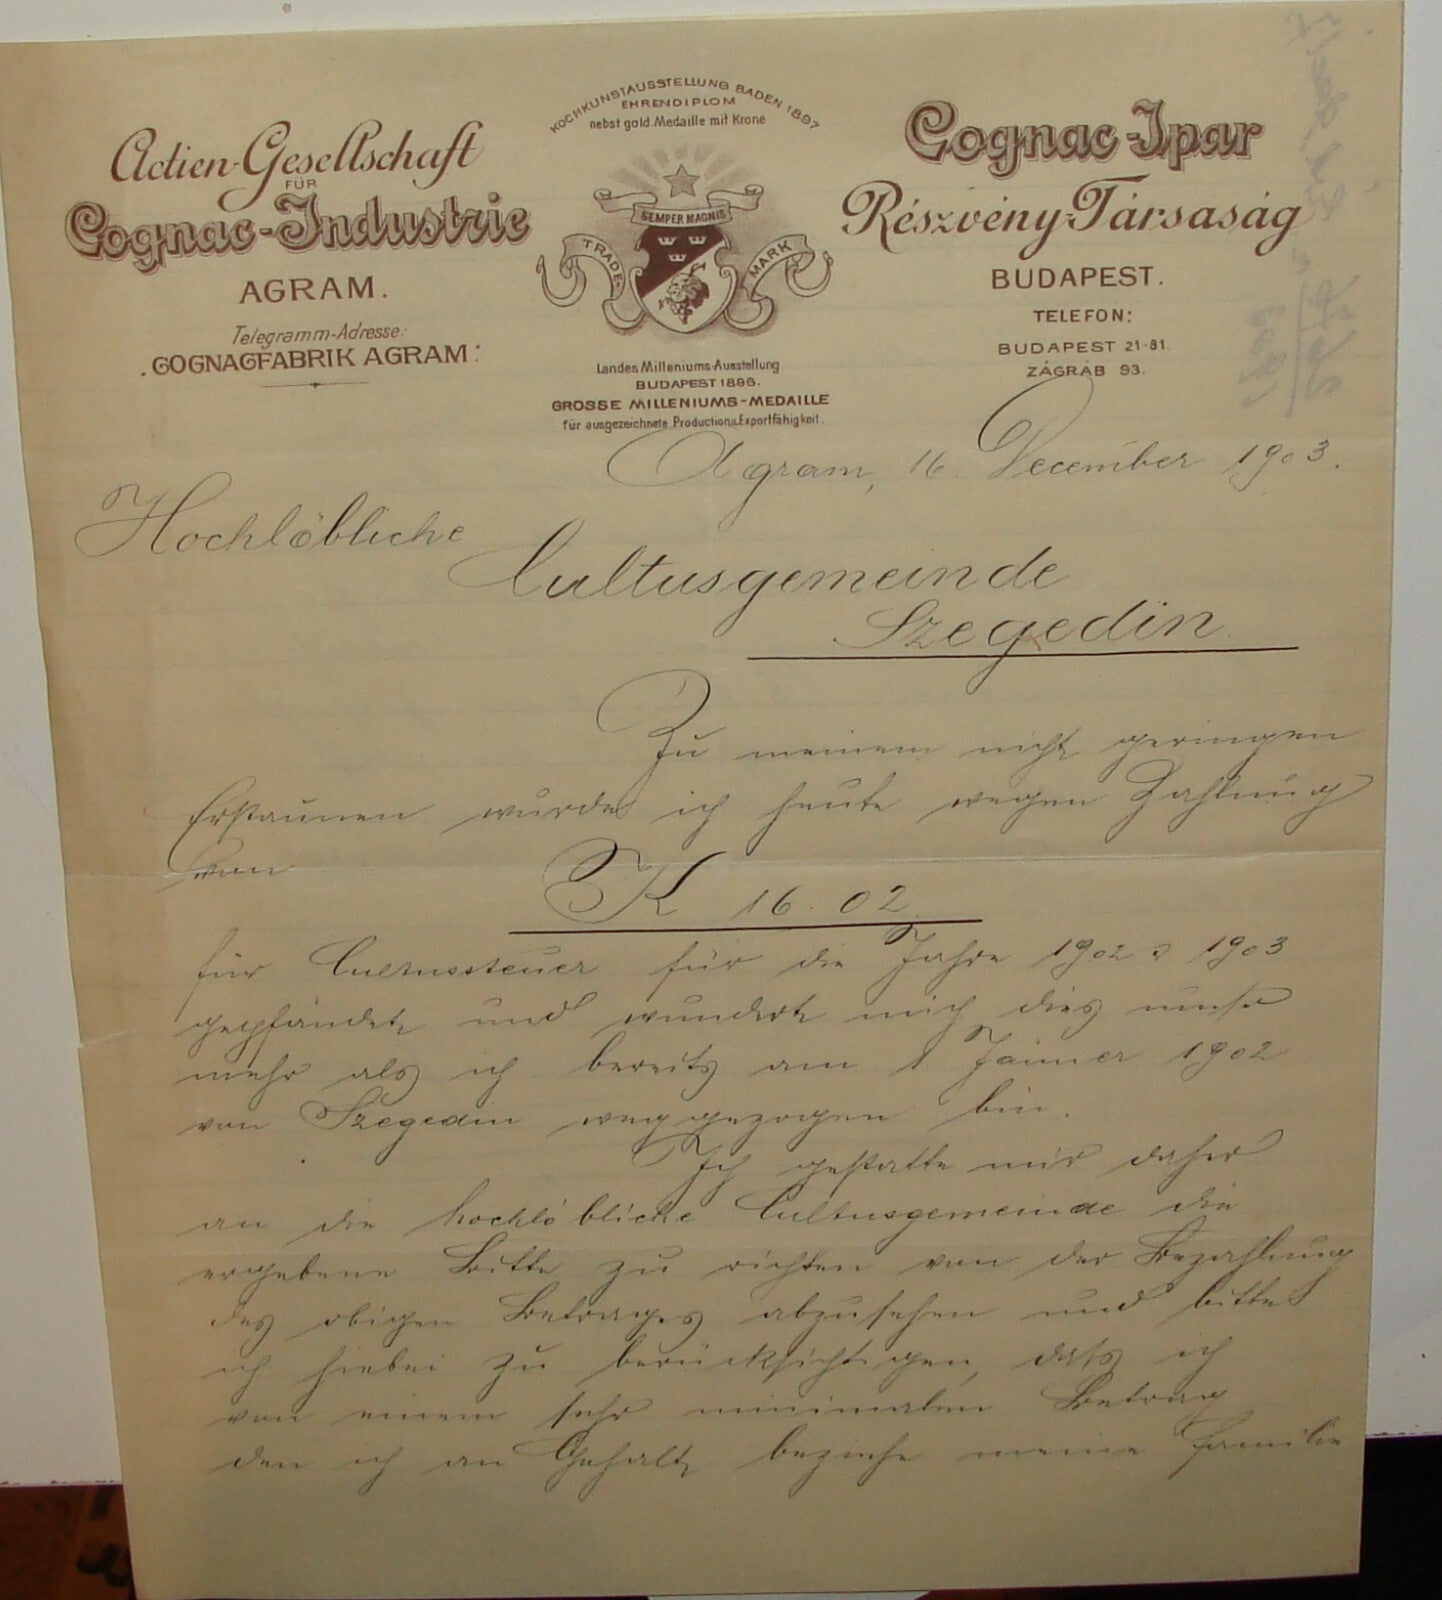 KOCHKUNSTAUSSTELLUNG BADEN 1897
EHRENDIPLOM
nebst gold. Medaille mit Krone
Actien-Gesellschaft
FÜR
Cognac-Industrie
AGRAM.
Telegramm-Adresse:
"COGNACFABRIK AGRAM."
SEMPER MAGNIS
TRADE-MARK
Landes Milleniums-Ausstellung
BUDAPEST 1896.
GROSSE MILLENIUMS-MEDAILLE
für ausgezeichnete Production & Exportfähigkeit.
Cognac-Ipar
Részvény-Társaság
BUDAPEST.
TELEFON:
BUDAPEST 21-81.
ZÁGRÁB 93.
Agram, 16. December 1903.
Hochlöbliche
Cultusgemeinde
Szegedin
Zu meinem nicht geringen
Erstaunen wurde ich heute wegen Zahlung
von
K 16.02
für Cultussteuer für die Jahre 1902 & 1903
gepfändet und wundert mich dies umso
mehr als ich bereits am 1 Jänner 1902
von Szegedin weggezogen bin.
Ich gestatte mir daher
an die hochlöbliche Cultusgemeinde die
ergebene Bitte zu richten von der Bezahlung
des obigen Betrages abzusehen und bitte
ich hiebei zu berücksichtigen, dass ich
von einem sehr minimalen Betrag
den ich an Gehalt beziehe meine Familie